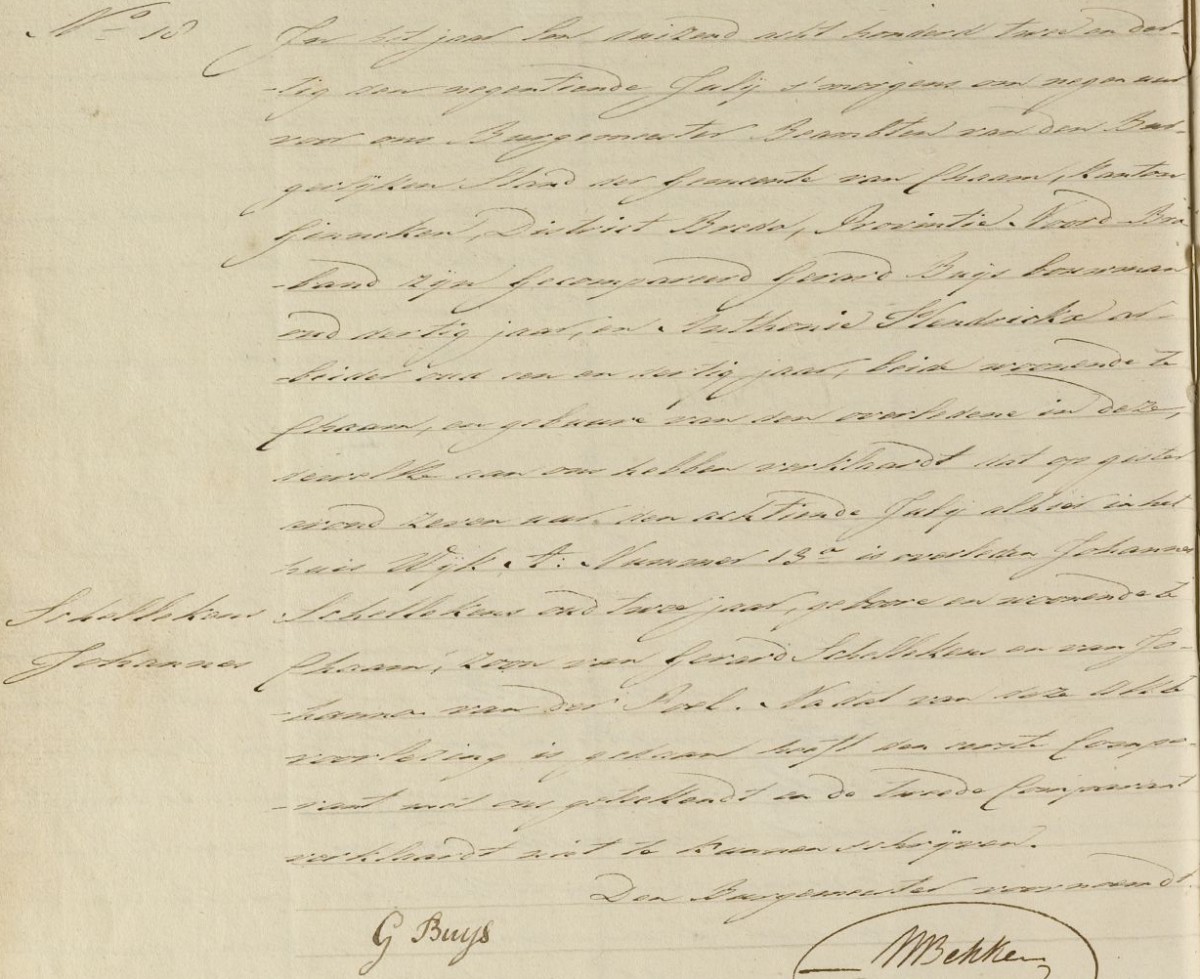 No 18
In het jaar Een duizend acht honderd twee en der-
-tig den negentiende Julij s'morgens om negen uur
voor ons Burgemeester Beambten van den Bur-
gerlijken Stand der Gemeente van Chaam, Kanton
Ginneken, District Breda, Provintie Noord Bra
-band zijn Gecompareerd Gerard Buijs bouwman
oud dertig jaar, en Anthonie Hendrickx ar-
-beider oud een en dertig jaar, beide woonende te
Chaam, en gebuure van den overledene in deze,
dewelke aan ons hebben verklaardt dat op gister
avond zeven uur den achtiende Julij alhier in het
huis Wijk A: Nummer 13a is overleden Johannes
Schellekens Schellekens oud twee jaar, geboore en woonende te
Johannes Chaam, zoon van Gerard Schellekens en van Jo-
-hanna van der Poel. Na dat van deze Akte
voorlezing is gedaan heeft den eerste Compa-
-rant met ons geteekendt en de tweede Comparant
verklaardt niet te kunnen schrijven.
Den Burgemeester voornoemdt.
G Buys
MBekker